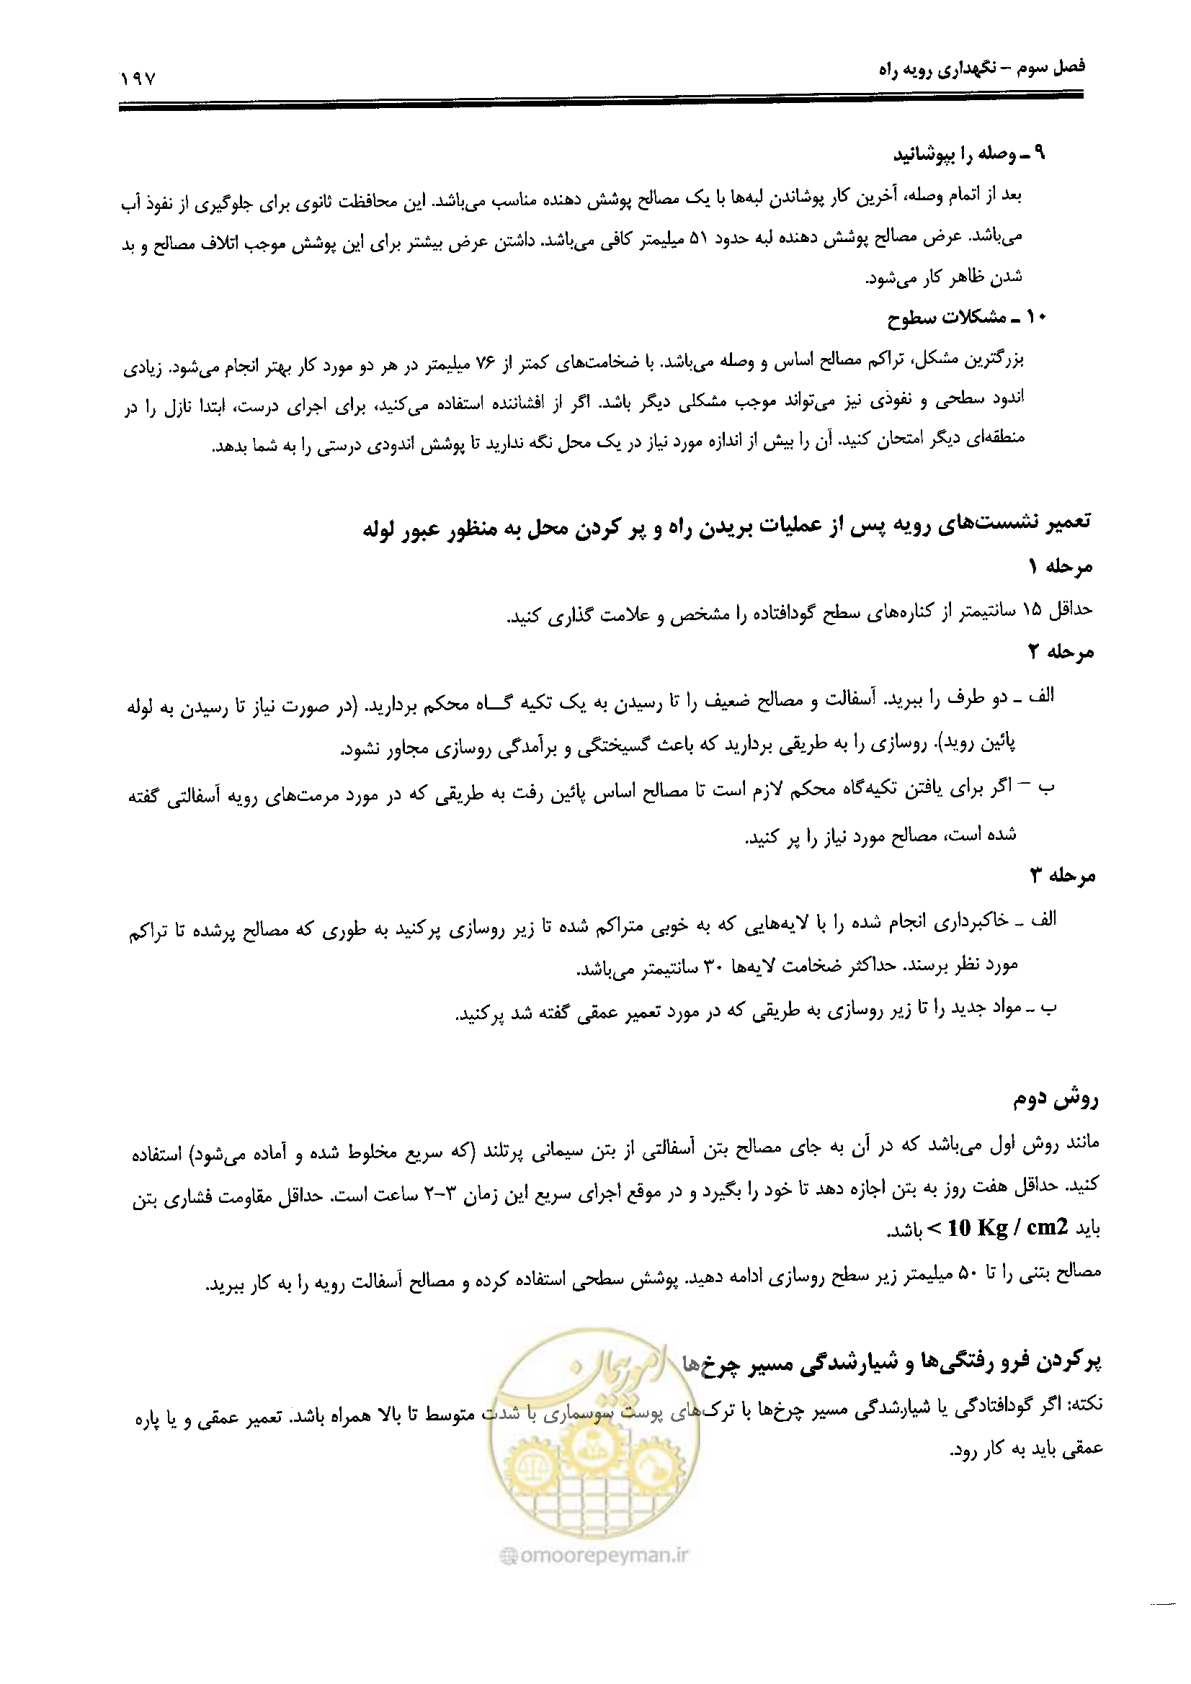 فصل سوم – نگهداری رویه راه
۱۹۷
۹ ـ وصله را بپوشانید
بعد از اتمام وصله، آخرین کار پوشاندن لبه‌ها با یک مصالح پوشش دهنده مناسب می‌باشد. این محافظت ثانوی برای جلوگیری از نفوذ آب
می‌باشد. عرض مصالح پوشش دهنده لبه حدود ۵۱ میلیمتر کافی می‌باشد. داشتن عرض بیشتر برای این پوشش موجب اتلاف مصالح و بد
شدن ظاهر کار می‌شود.
۱۰ ـ مشکلات سطوح
بزرگترین مشکل، تراکم مصالح اساس و وصله می‌باشد. با ضخامت‌های کمتر از ۷۶ میلیمتر در هر دو مورد کار بهتر انجام می‌شود. زیادی
اندود سطحی و نفوذی نیز می‌تواند موجب مشکلی دیگر باشد. اگر از افشاننده استفاده می‌کنید، برای اجرای درست، ابتدا نازل را در
منطقه‌ای دیگر امتحان کنید. آن را بیش از اندازه مورد نیاز در یک محل نگه ندارید تا پوشش اندودی درستی را به شما بدهد.
تعمیر نشست‌های رویه پس از عملیات بریدن راه و پر کردن محل به منظور عبور لوله
مرحله ۱
حداقل ۱۵ سانتیمتر از کناره‌های سطح گودافتاده را مشخص و علامت گذاری کنید.
مرحله ۲
الف ـ دو طرف را ببرید. آسفالت و مصالح ضعیف را تا رسیدن به یک تکیه گـــاه محکم بردارید. (در صورت نیاز تا رسیدن به لوله
پائین روید). روسازی را به طریقی بردارید که باعث گسیختگی و برآمدگی روسازی مجاور نشود.
ب – اگر برای یافتن تکیه‌گاه محکم لازم است تا مصالح اساس پائین رفت به طریقی که در مورد مرمت‌های رویه آسفالتی گفته
شده است، مصالح مورد نیاز را پر کنید.
مرحله ۳
الف ـ خاکبرداری انجام شده را با لایه‌هایی که به خوبی متراکم شده تا زیر روسازی پرکنید به طوری که مصالح پرشده تا تراکم
مورد نظر برسند. حداکثر ضخامت لایه‌ها ۳۰ سانتیمتر می‌باشد.
ب ـ مواد جدید را تا زیر روسازی به طریقی که در مورد تعمیر عمقی گفته شد پرکنید.
روش دوم
مانند روش اول می‌باشد که در آن به جای مصالح بتن آسفالتی از بتن سیمانی پرتلند (که سریع مخلوط شده و آماده می‌شود) استفاده
کنید. حداقل هفت روز به بتن اجازه دهد تا خود را بگیرد و در موقع اجرای سریع این زمان ۳-۲ ساعت است. حداقل مقاومت فشاری بتن
باید < 10 Kg / cm2 باشد.
مصالح بتنی را تا ۵۰ میلیمتر زیر سطح روسازی ادامه دهید. پوشش سطحی استفاده کرده و مصالح آسفالت رویه را به کار ببرید.
پرکردن فرو رفتگی‌ها و شیارشدگی مسیر چرخ‌ها
نکته: اگر گودافتادگی یا شیارشدگی مسیر چرخ‌ها با ترک‌های پوست سوسماری با شدت متوسط تا بالا همراه باشد. تعمیر عمقی و یا پاره
عمقی باید به کار رود.
امور پیمان
omoorepeyman.ir